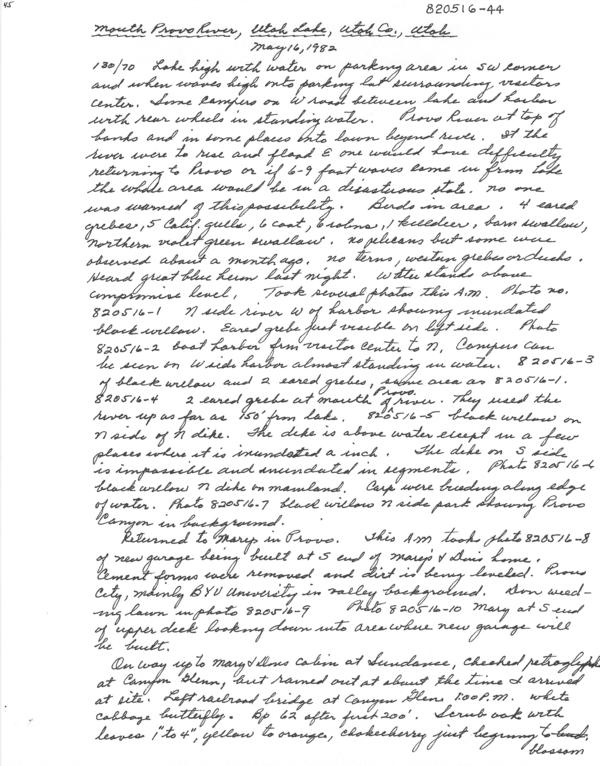 45
820516-44
Mouth Provo River, Utah Lake, Utah Co., Utah
May 16, 1982
130/70 Lake high with water on parking area in SW corner
and when waves high onto parking lot surrounding visitors
center. Some campers on W road between lake and harbor
with rear wheels in standing water. Provo River at top of
banks and in some places into lawn beyond river. If the
river were to rise and flood E one would have difficulty
returning to Provo or if 6-9 foot waves come in from lake
the whole area would be in a disasterous state. no one
was warned of this possibility. Birds in area. 4 eared
grebes, 5 Calif. gulls, 6 coot, 6 robins, 1 killdeer, barn swallow,
Northern violet green swallow. no pelicans but some were
observed about a month ago. no terns, western grebes or ducks.
Heard great blue heron last night. Water stands above
compromise level. Took several photos this A.M. Photo no.
820516-1 N side river W of harbor showing inundated
black willow. Eared grebe just visible on left side. Photo
820516-2 boat harbor frm visitor center to N, Campers can
be seen on W side harbor almost standing in water. 820516-3
of black willow and 2 eared grebes, same area as 820516-1.
820516-4 2 eared grebe at mouth of Provo river. They used the
river up as far as 150' frm lake. 820516-5 black willow on
N side of N dike. The dike is above water except in a few
places where it is inundated a inch. The dike on S side
is impassible and inundated in segments. Photo 820516-6
black willow N dike on mainland. Carp were breeding along edge
of water. Photo 820516-7 black willow N side park showing Provo
Canyon in background.
Returned to Marys in Provo. This A.M took photo 820516-8
of new garage being built at S end of Mary's & Dons home.
Cement forms were removed and dirt is being leveled. Provo
City, mainly BYU University in valley background. Don weed-
ing lawn in photo 820516-9 Photo 820516-10 Mary at S end
of upper deck looking down into area where new garage will
be built.
On way up to Mary & Dons Cabin at Sundance, checked petroglyphs
at Canyon Glenn, but rained out at about the time I arrived
at site. Left railroad bridge at Canyon Glenn 1:00 P.M. white
cabbage butterfly. Bp 62 after first 200'. Scrub oak with
leaves 1" to 4", yellow to orange, chokecherry just begining to
blossom